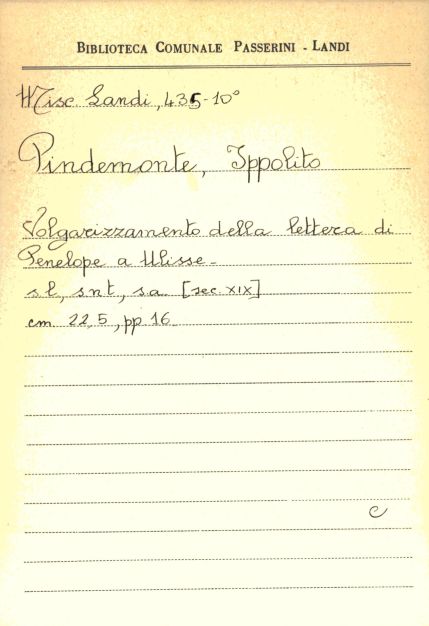 BIBLIOTECA COMUNALE PASSERINI - LANDI
Misc. Landi, 435-10°
Pindemonte, Ippolito
Volgarizzamento della lettera di
Penelope a Ulisse -
s.l, s.n.t, s.a. [sec. XIX]
cm. 22,5, pp. 16
C